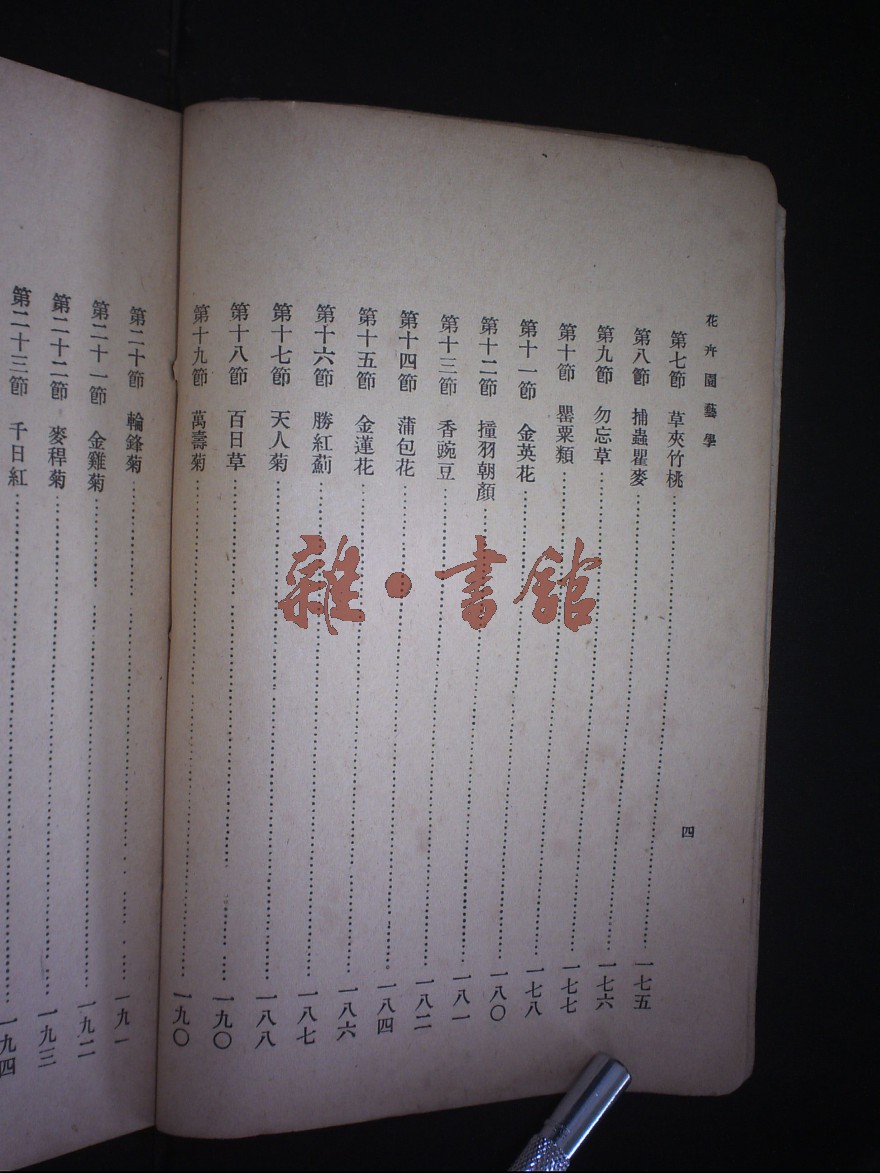 花卉園藝學
四
第七節 草夾竹桃……一七五
第八節 捕蟲瞿麥……一七六
第九節 勿忘草……一七七
第十節 罌粟類……一七八
第十一節 金英花……一八〇
第十二節 撞羽朝顏……一八一
第十三節 香豌豆……一八二
第十四節 蒲包花……一八四
第十五節 金蓮花……一八六
第十六節 勝紅薊……一八七
第十七節 天人菊……一八八
第十八節 百日草……一九〇
第十九節 萬壽菊……一九〇
第二十節 輪鋒菊……一九一
第二十一節 金雞菊……一九二
第二十二節 麥稈菊……一九三
第二十三節 千日紅……一九四
雜·書館